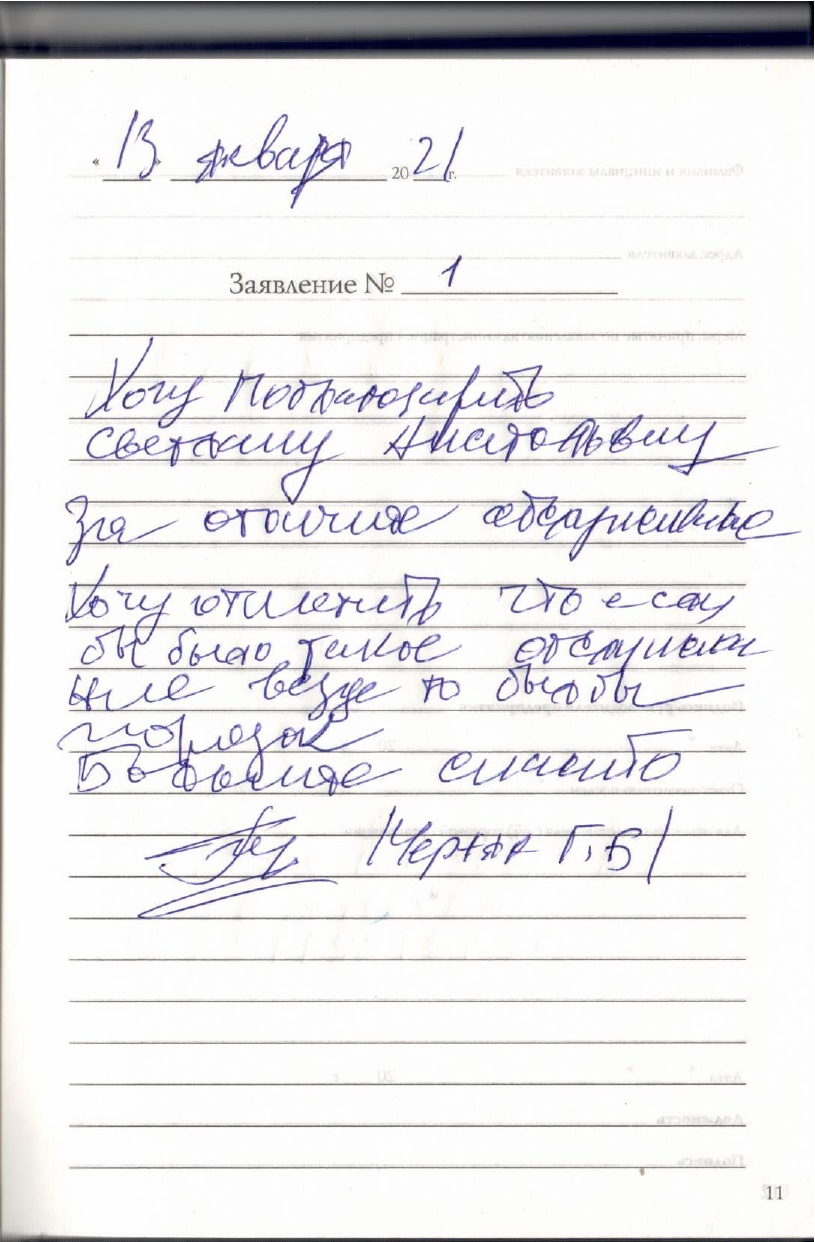 « 13 » января 2021 г.
Заявление № 1
Хочу Поблагодарить
Светлану Анатольевну
За отличное обслуживание
Хочу отметить что если
бы было такое обслужива
ние везде то было бы
порядок
Большое спасибо
/Черняк Г.Б/
11